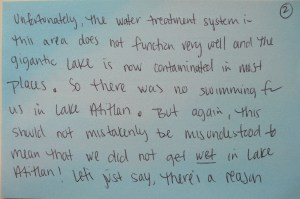 ②
Unfortunately, the water treatment system in
this area does not function very well and the
gigantic lake is now contaminated in most
places. So there was no swimming for
us in Lake Atitlan. But again, this
should not mistakenly be misunderstood to
mean that we did not get wet in Lake
Atitlan! Let's just say, there's a reason